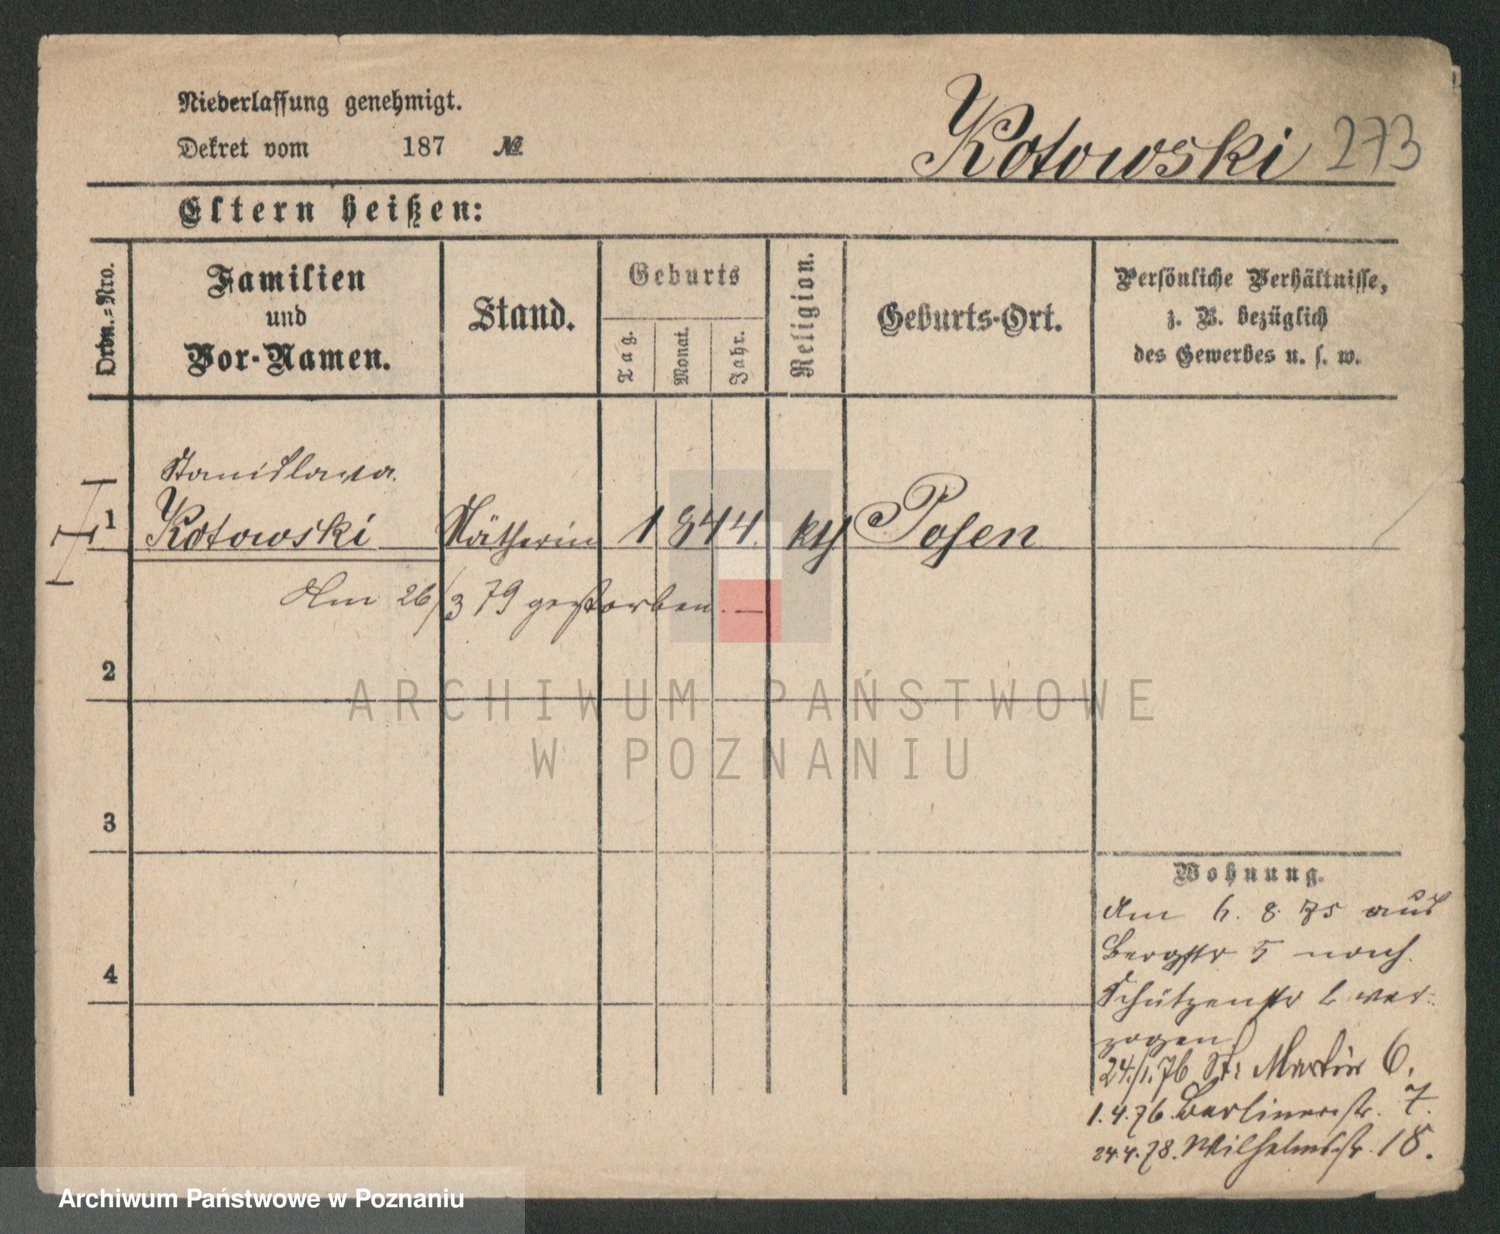 Niederlassung genehmigt.
Dekret vom 187 №
Kotowski 273
Eltern heißen:
Ordn.-Nro.
Familien
und
Vor-Namen.
Stand.
Geburts
Tag.
Monat.
Jahr.
Religion.
Geburts-Ort.
Persönliche Verhältnisse,
z. B. bezüglich
des Gewerbes u. s. w.
Stanislawa
1 Kotowski Nätherin 1844. kth Posen
Am 26/3 79 gestorben. —
2
ARCHIWUM PAŃSTWOWE
W POZNANIU
3
Wohnung.
Am 6. 8. 75 aus
Bergstr 5 nach
4
Schützenstr 2 ver-
zogen
24./1. 76 St: Martin 6.
1. 4. 76. Berlinerstr. 7.
24. 4. 78. Wilhelmstr. 18.
Archiwum Państwowe w Poznaniu